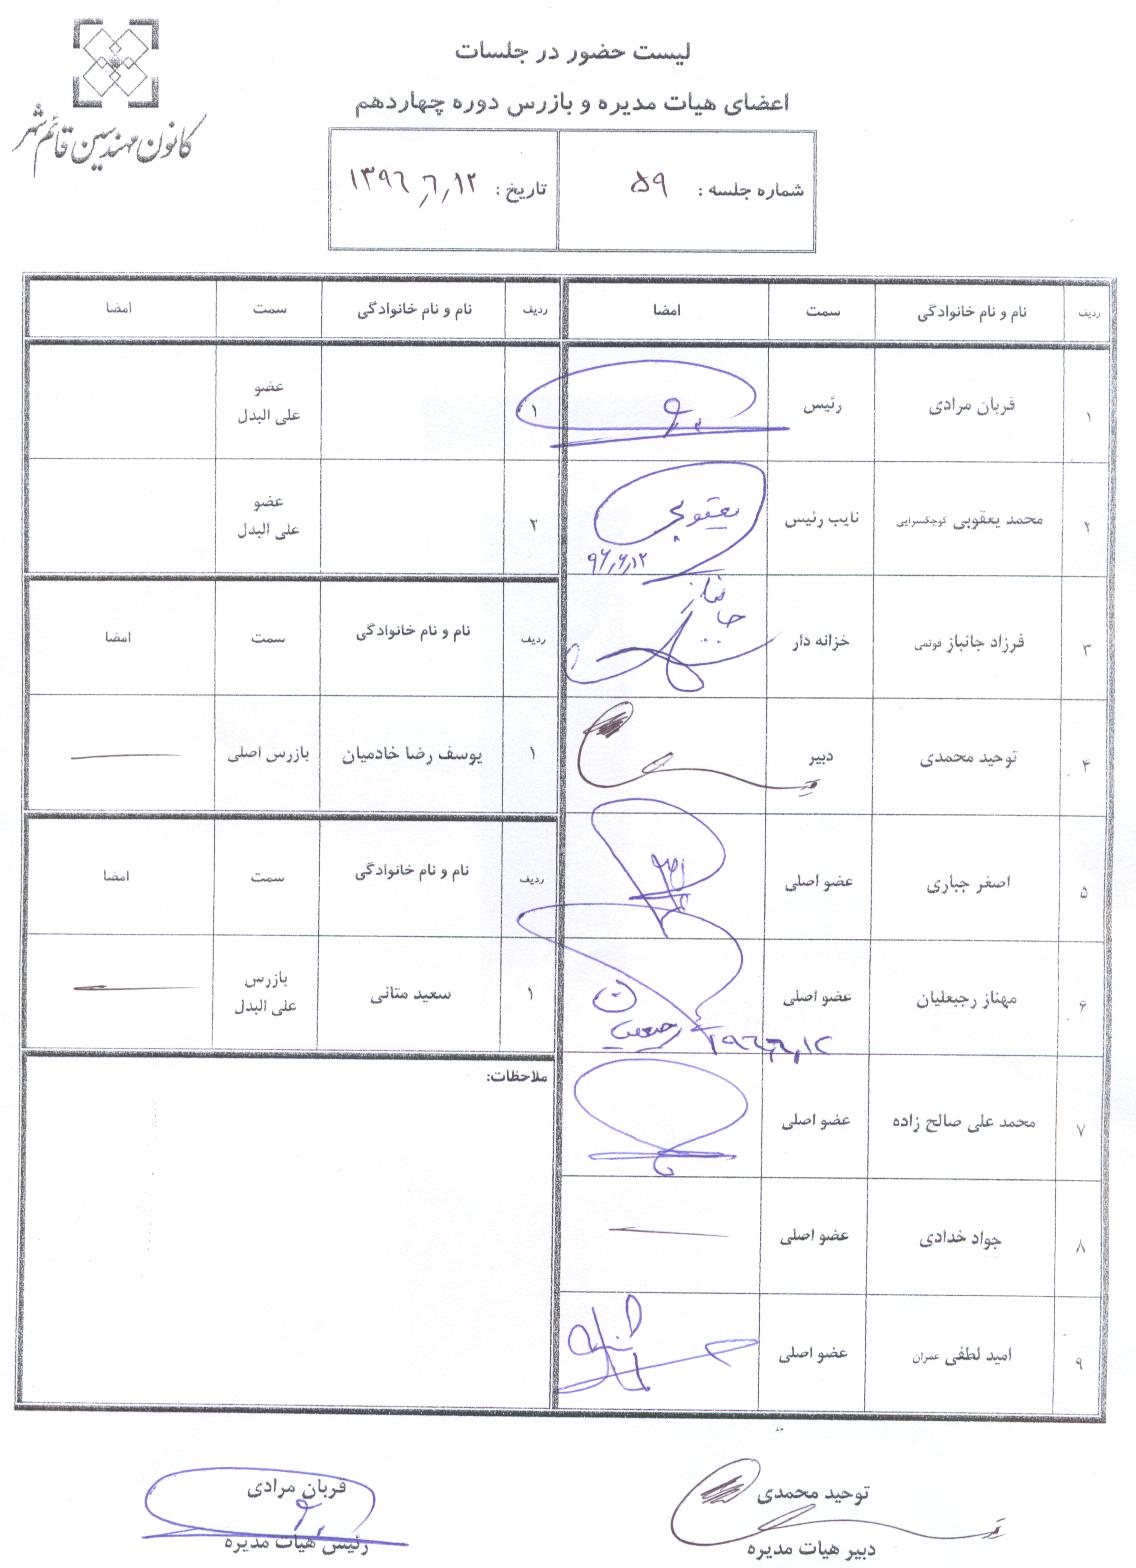 کانون مهندسین قائم شهر
لیست حضور در جلسات
اعضای هیات مدیره و بازرس دوره چهاردهم
شماره جلسه : ۵۹
تاریخ : ۱۳۹۶٫۶٫۱۲
ردیف نام و نام خانوادگی سمت امضا
۱ قربان مرادی رئیس
۲ محمد یعقوبی کوچکسرایی نایب رئیس یعقوبی
۹۶٫۶٫۱۲
۳ فرزاد جانباز قوتمی خزانه دار جانباز
۴ توحید محمدی دبیر
۵ اصغر جباری عضو اصلی
۶ مهناز رجبعلیان عضو اصلی
۱۳۹۶٫۶٫۱۲
۷ محمد علی صالح زاده عضو اصلی
۸ جواد خدادی عضو اصلی
۹ امید لطفی عمران عضو اصلی
ردیف نام و نام خانوادگی سمت امضا
۱ عضو
علی البدل
۲ عضو
علی البدل
ردیف نام و نام خانوادگی سمت امضا
۱ یوسف رضا خادمیان بازرس اصلی
ردیف نام و نام خانوادگی سمت امضا
۱ سعید متانی بازرس
علی البدل
ملاحظات:
توحید محمدی
دبیر هیات مدیره
قربان مرادی
رئیس هیات مدیره